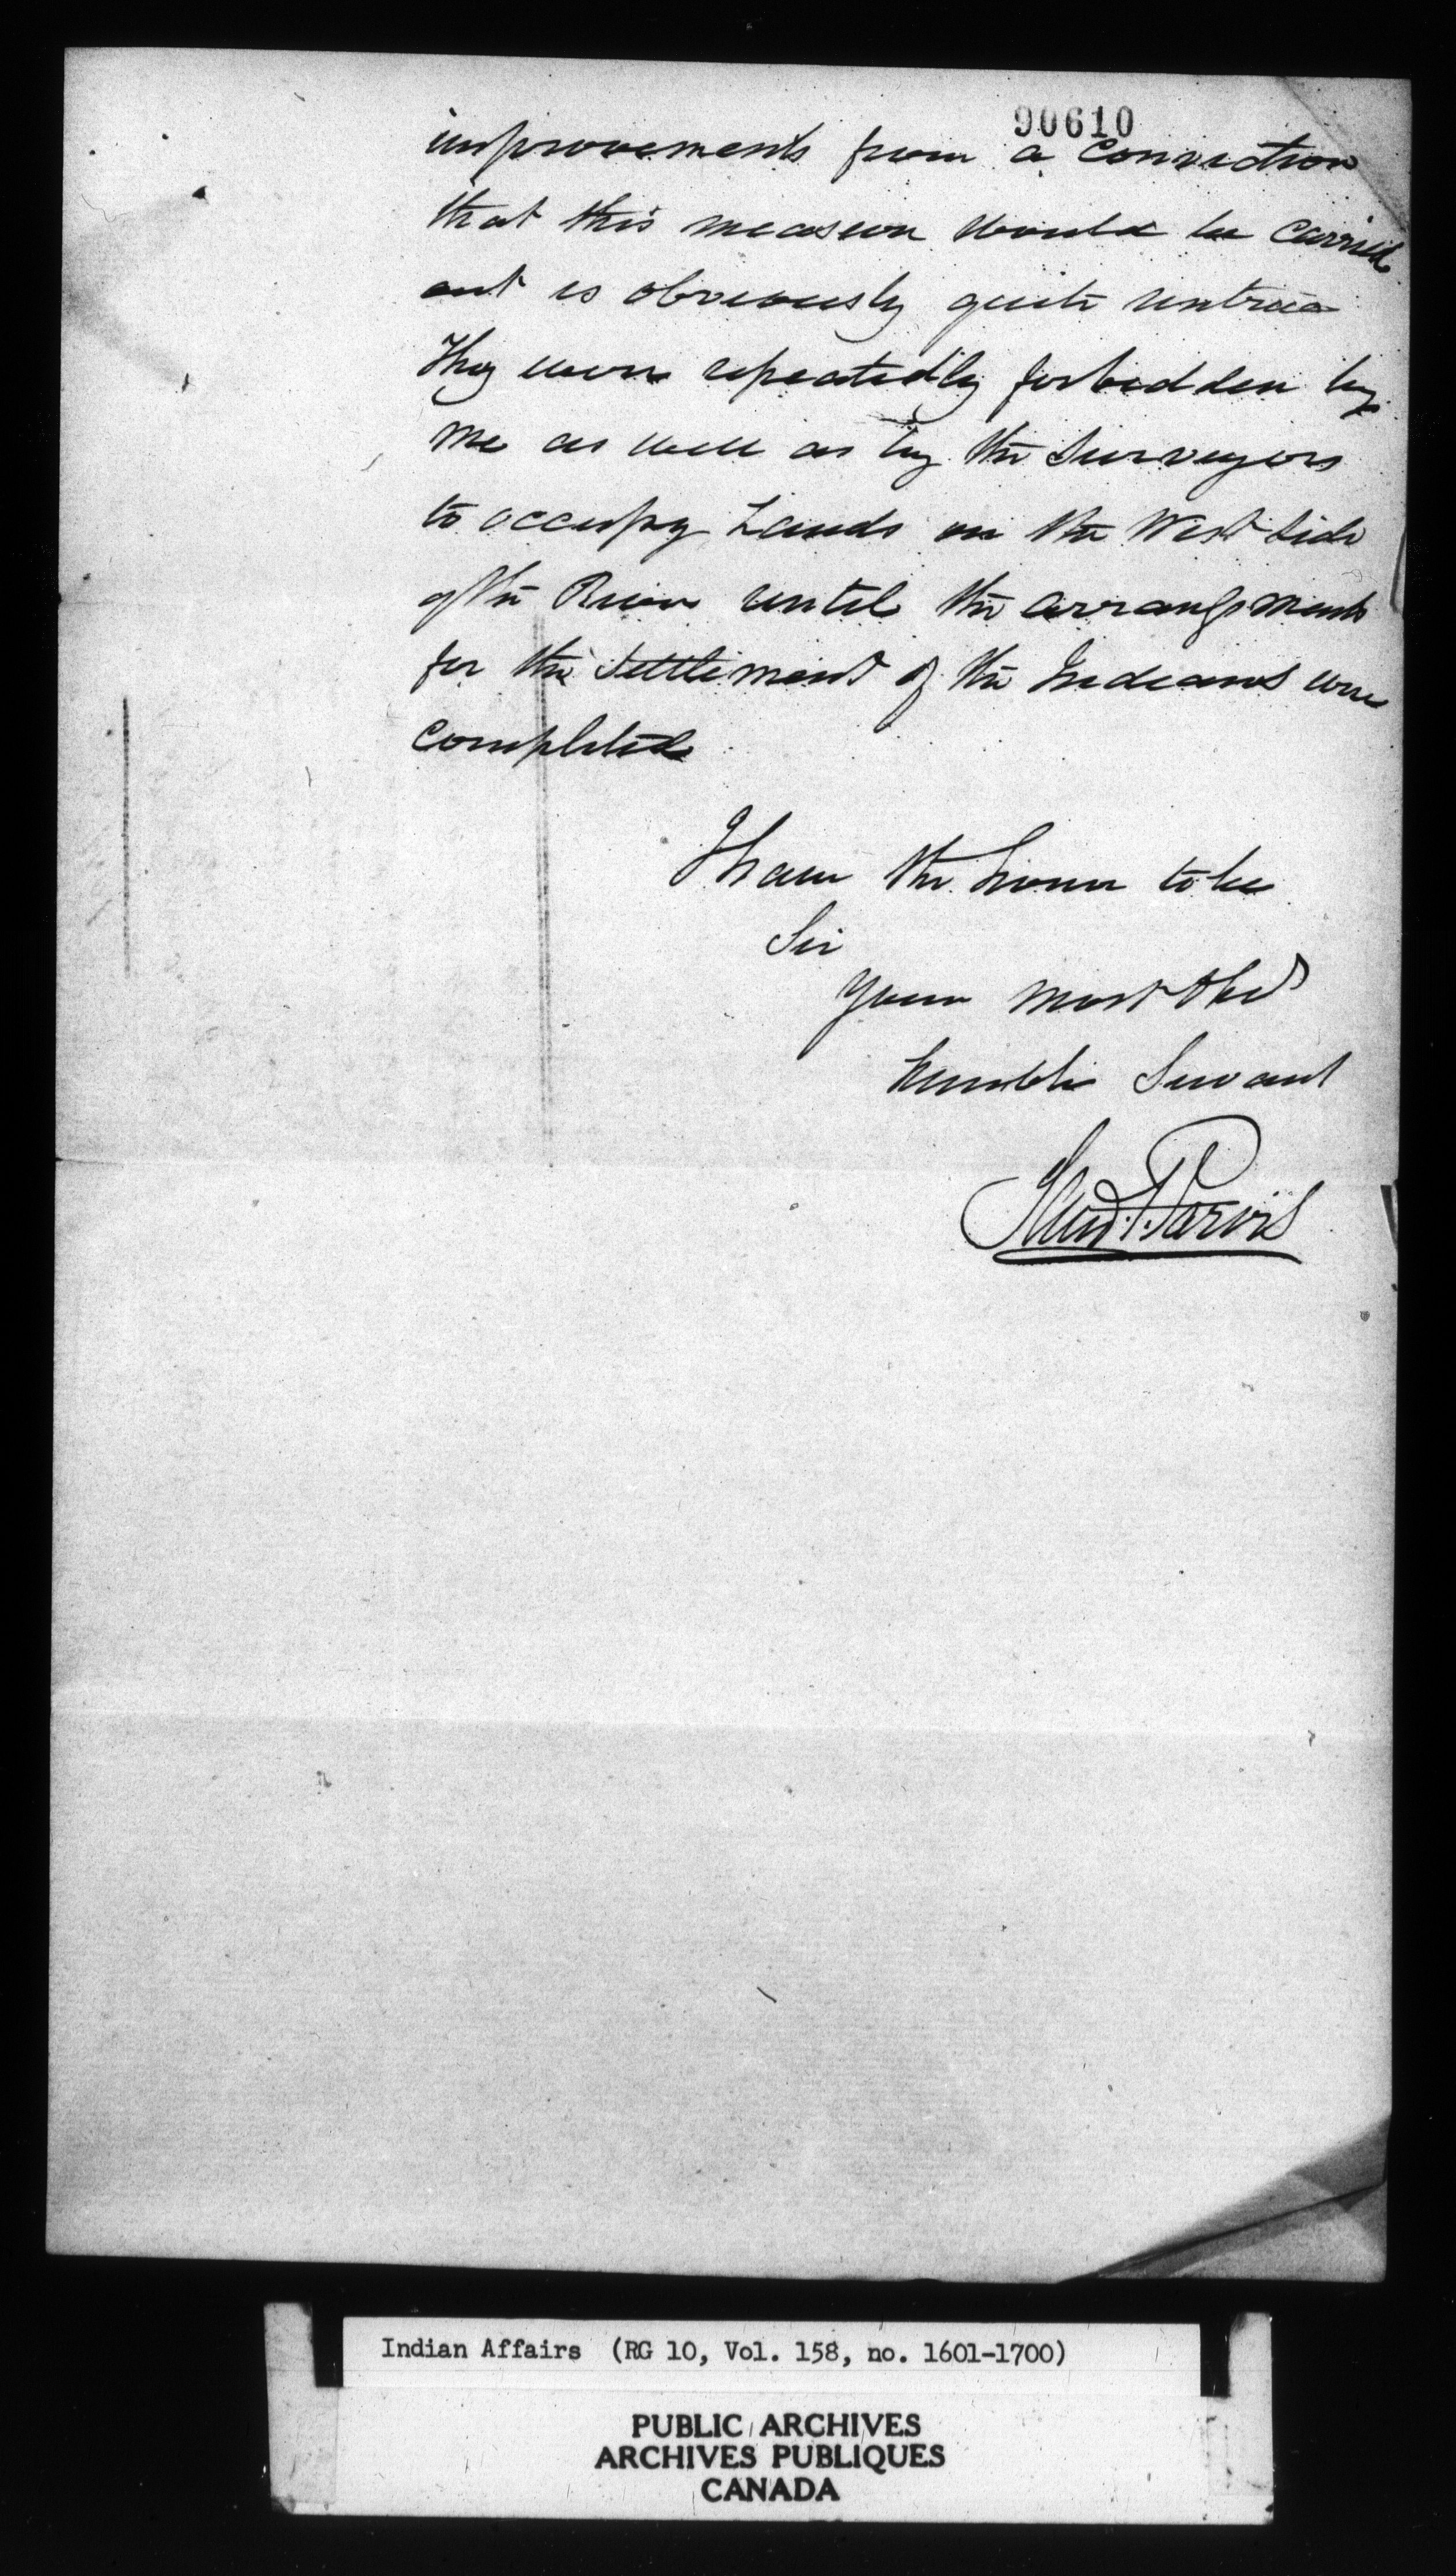 90610
improvements from a conviction
that this measure would be carried
out is obviously quite untrue
They were repeatedly forbidden by
me as well as by the Surveyors
to occupy Lands on the West side
of the River until the arrangements
for the Settlement of the Indians were
completed
I have the honor to be
Sir
Your most Obed
humble Servant
Jarvis
Indian Affairs (RG 10, Vol. 158, no. 1601-1700)
PUBLIC ARCHIVES
ARCHIVES PUBLIQUES
CANADA